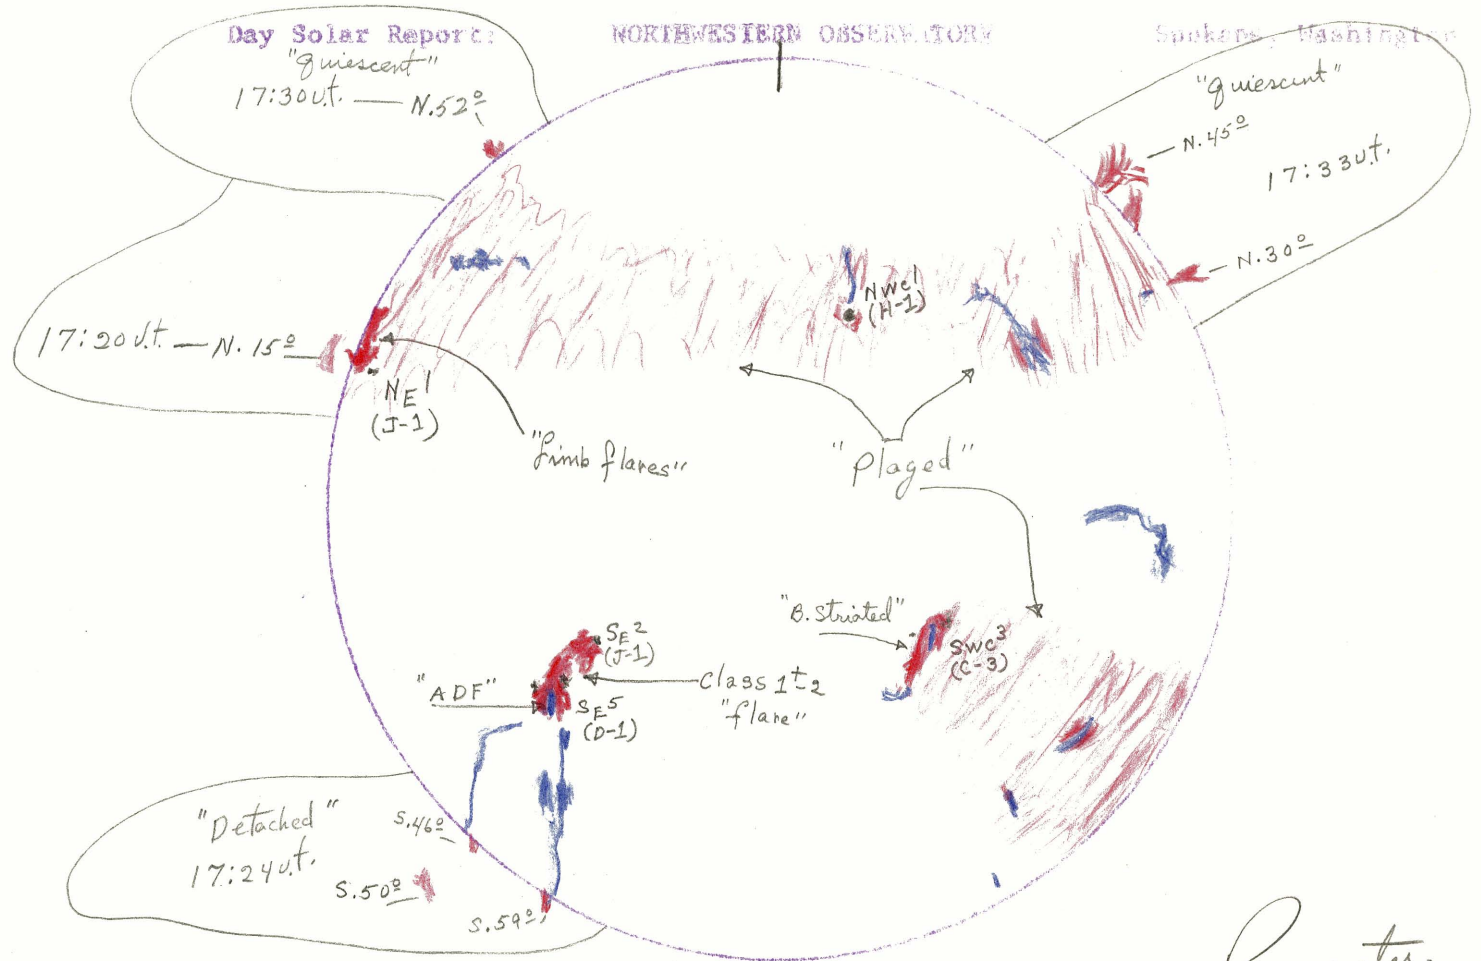 Day Solar Report: NORTHWESTERN OBSERVATORY Spokane, Washington
"Quiescent"
17:30 U.t. — N.52º
"Quiescent"
N.45º
17:33 U.t.
N.30º
17:20 U.t. — N. 15º
NE1
(J-1)
NWC1
(H-1)
"Limb flares"
"Plaged"
"B. Striated"
SWC3
(C-3)
SE2
(J-1)
"ADF"
Class 1+-2
"flare"
SE5
(D-1)
"Detached"
17:24 U.t.
S.46º
S.50º
S.59º